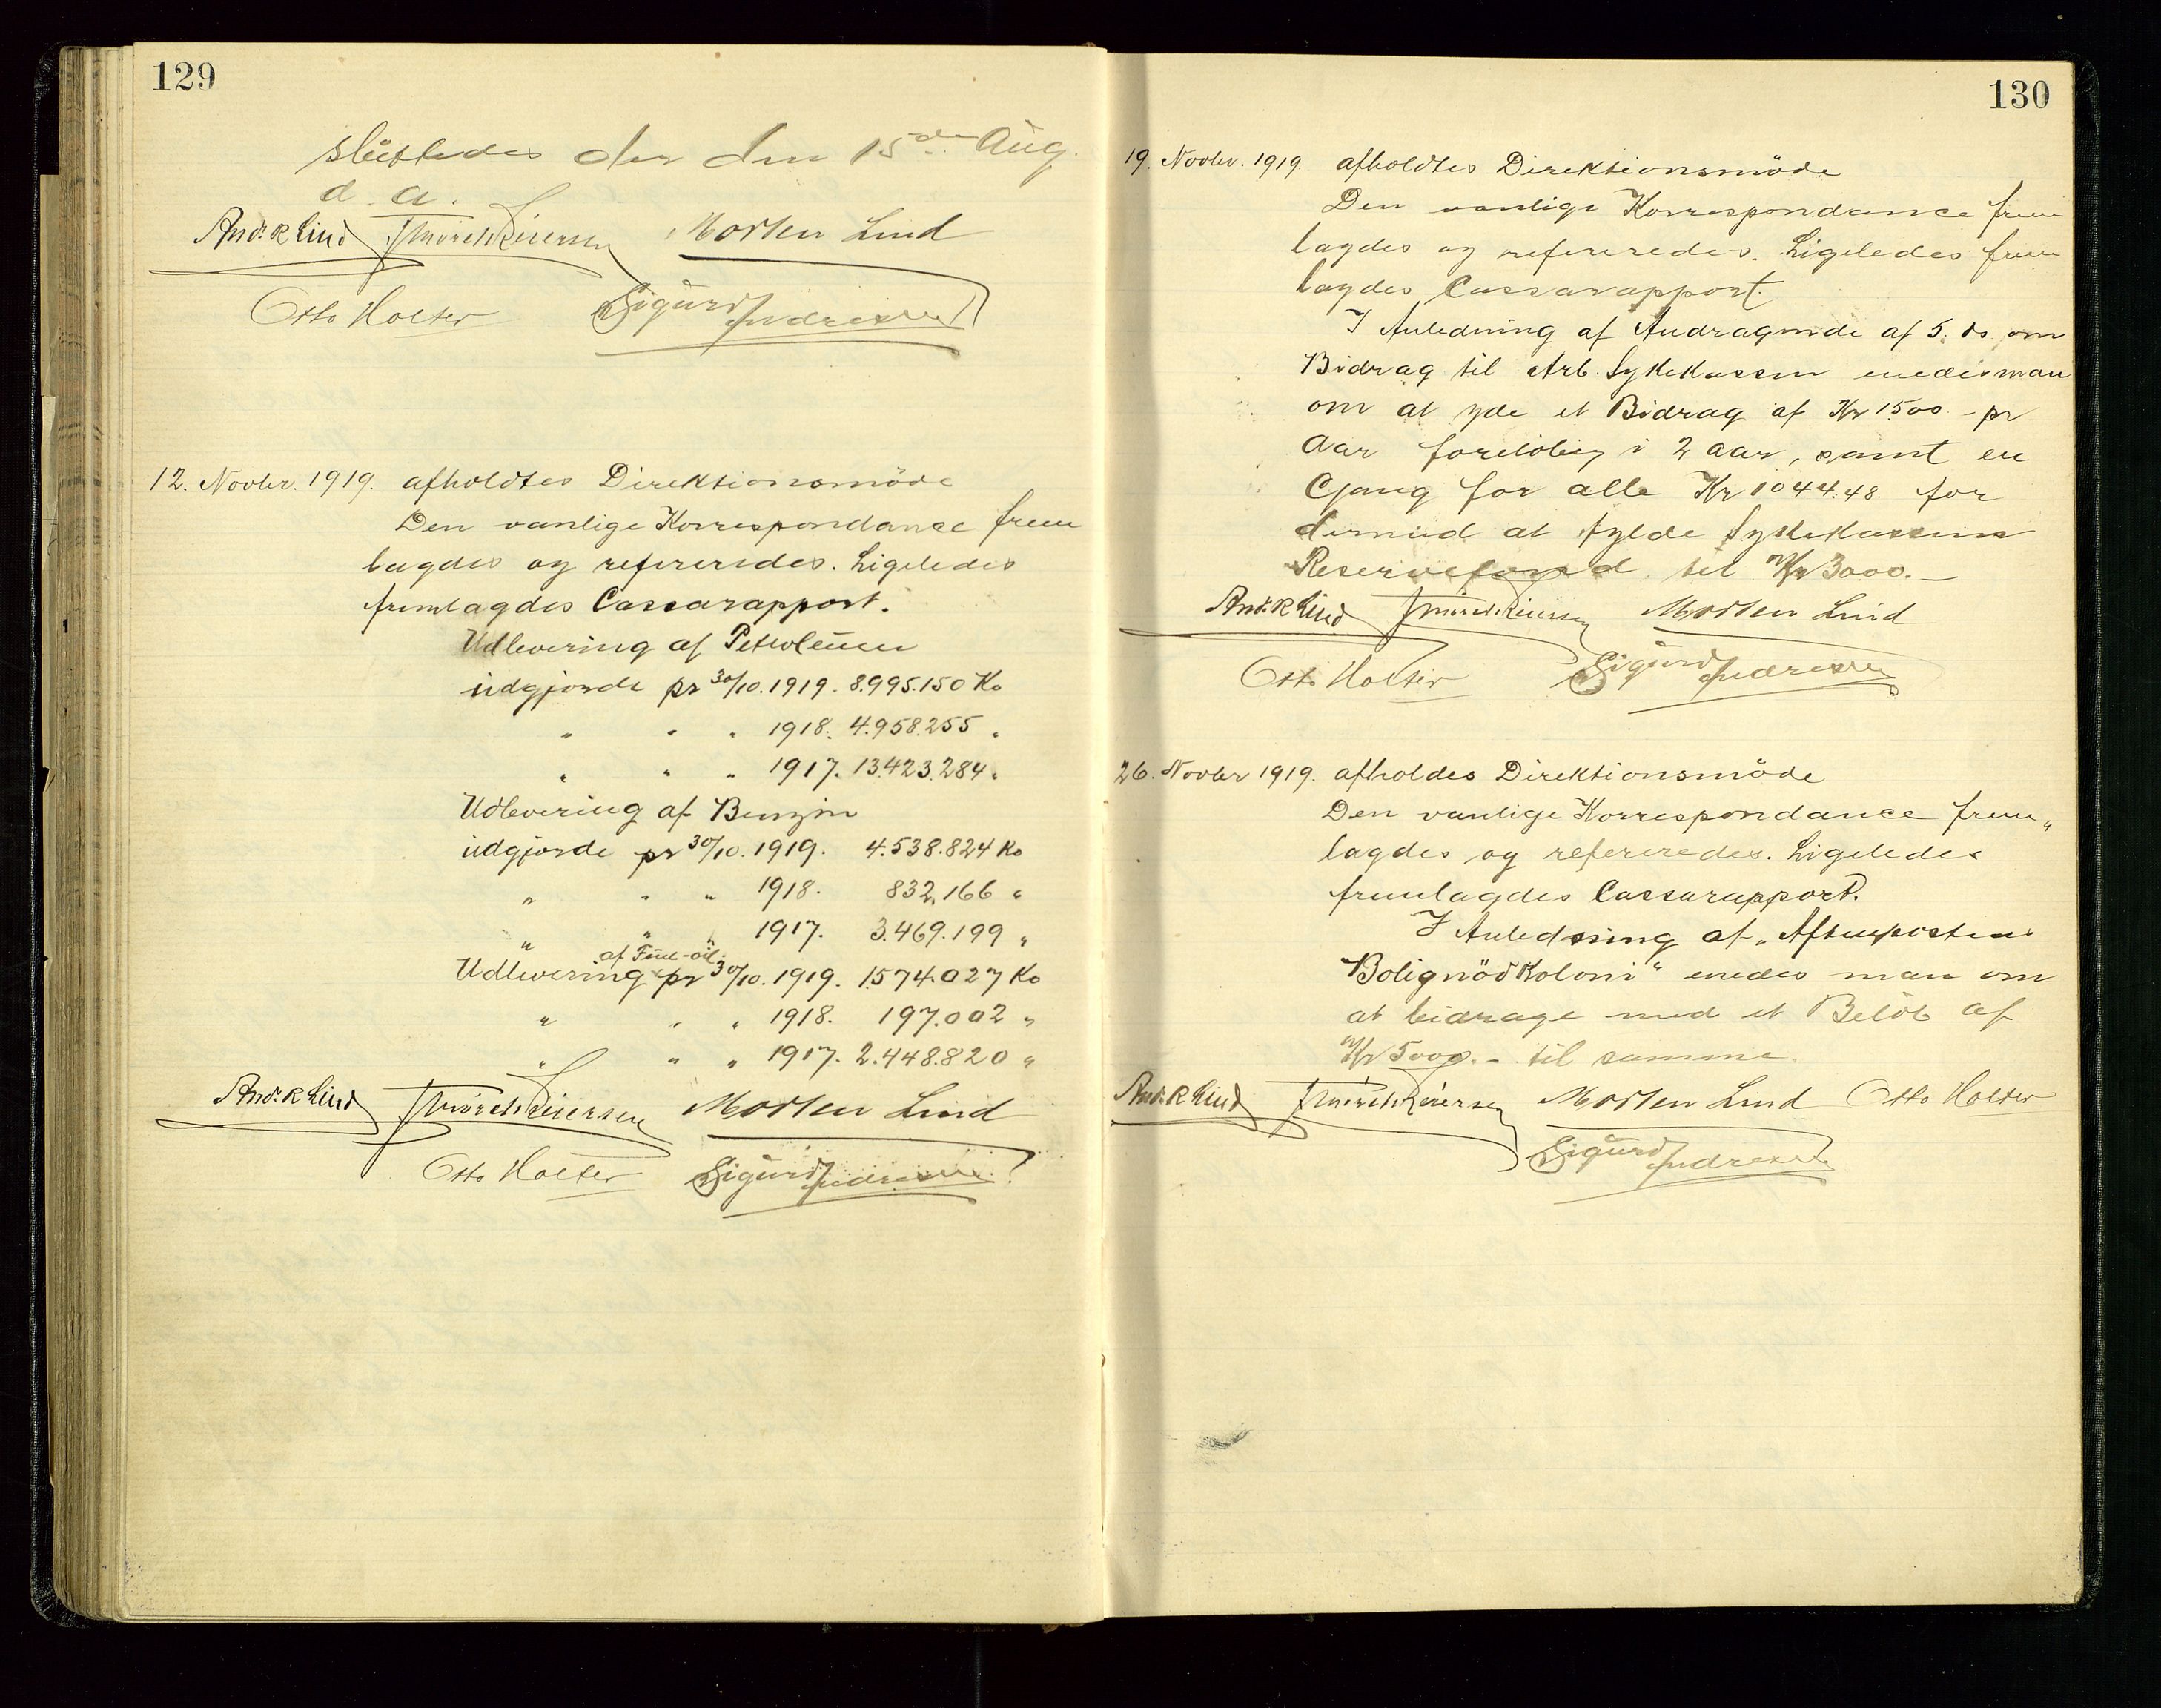 129
sluttedes der den 15de Aug.
d. a.
Andr. K Lind J Mørch Reiersen Morten Lind
Otto Holter Sigurd Andresen
12. Novbr. 1919. afholdtes Direktionsmöde
Den vanlige Korrespondance frem
lagdes og refereredes. Ligeledes
fremlagdes Cassarapport.
Udlevering af Petroleum
udgjorde pr 30/10. 1919. 8.995.150 Ko
" " " 1918. 4.958.255 "
" " " 1917. 13.423.284 "
Udlevering af Benzin
udgjorde pr 30/10. 1919. 4.538.824 Ko
" " " 1918. 832.166 "
" " " 1917. 3.469.199 "
af Fuel-oil
Udlevering pr 30/10. 1919. 1.574.027 Ko
" " " 1918. 197.002 "
" " " 1917. 2.448.820 "
Andr. K Lind J Mørch Reiersen Morten Lind
Otto Holter Sigurd Andresen
130
19. Novbr. 1919. afholdtes Direktionsmöde
Den vanlige Korrespondance frem
lagdes og refereredes. Ligeledes frem
lagdes Cassarapport.
I Anledning af Andragende af 5. ds om
Bidrag til Arb. Sykekassen enedes man
om at yde et Bidrag af Kr 1500.- pr
Aar forelöbig i 2 Aar, samt en
Gang for alle Kr 1044.48. for
dermed at fylde Sykekassens
Reservefond til Kr 3000.-
Andr. K Lind J Mørch Reiersen Morten Lind
Otto Holter Sigurd Andresen
26. Novbr 1919. afholdes Direktionsmöde
Den vanlige Korrespondance frem„
lagdes og refereredes. Ligeledes
fremlagdes Cassarapport.
I Anledning af „Aftenpostens
Bolignödkoloni" enedes man om
at bidrage med et Belöb af
Kr 5000.- til samme.
Andr. K Lind J Mørch Reiersen Morten Lind Otto Holter
Sigurd Andresen